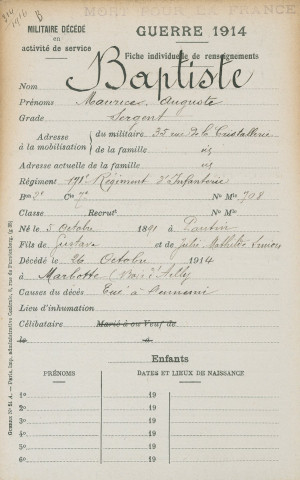 MORT POUR LA FRANCE
1916 B
MILITAIRE DÉCÉDÉ
en
activité de service
GUERRE 1914
Fiche individuelle de renseignements
Nom Baptiste
Prénoms Maurice, Auguste
Grade Sergent
Adresse à la mobilisation
du militaire 35 rue de la Cristallerie
de la famille id
Adresse actuelle de la famille id
Régiment 171e Régiment d'Infanterie
Bon 2e Cie 7e No Mle 708
Classe Recrutt No Mle
Né le 3 Octobre 1891 à Pantin
Fils de Gustave et de Julie Mathilde
Décédé le 26 Octobre 1914
à Marbotte (Bois d'Ailly)
Causes du décès Tué à l'ennemi
Lieu d'inhumation
Célibataire Marié à ou Veuf de
le à
Enfants
PRÉNOMS DATES ET LIEUX DE NAISSANCE
1o 19
2o 19
3o 19
4o 19
5o 19
6o 19